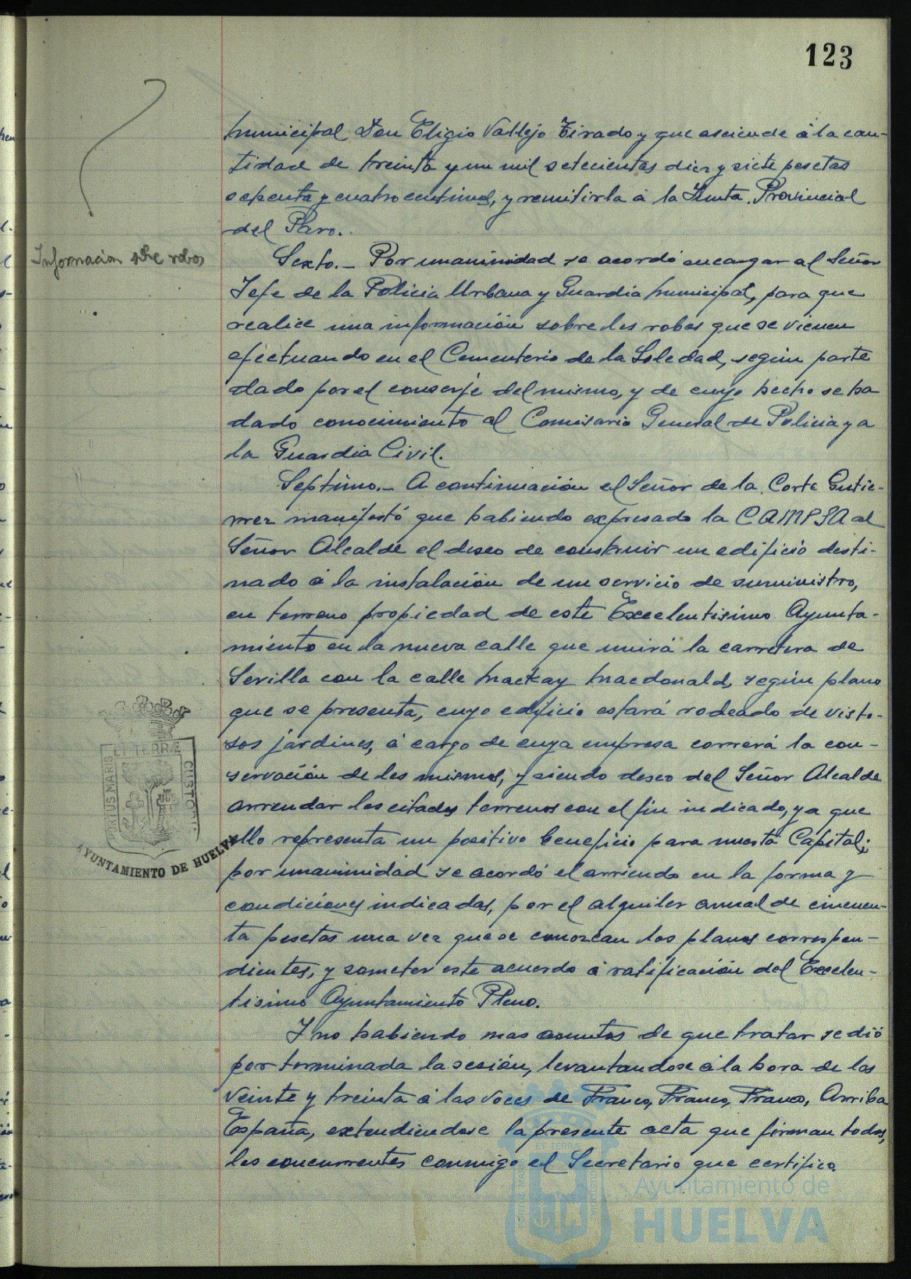 123
municipal Don Eligio Vallejo Tirado y que asciende á la can-
tidad de treinta y un mil setecientas diez y siete pesetas
sepenta y cuatro centimos, y remitirla á la Junta Provincial
del Paro.
Informacion sbre robos
Sexto.- Por unanimidad se acordó encargar al Señor
Jefe de la Policia Urbana y Guardia municipal, para que
realice una información sobre los robos que se vienen
efectuando en el Cementerio de la Soledad, según parte
dado por el conserje del mismo, y de cuyo hecho se ha
dado conocimiento al Comisario General de Policia y a
la Guardia Civil.
Septimo.- A continuación el Señor de la Corte Gutie-
rrez manifestó que habiendo expresado la CAMPSA al
Señor Alcalde el deseo de construir un edificio desti-
nado á la instalación de un servicio de suministro,
en terreno propiedad de este Excelentisimo Ayunta-
miento en la nueva calle que unirá la carretera de
Sevilla con la calle Mackay Macdonald, según plano
que se presenta, cuyo edificio estará rodeado de visto-
sos jardines, á cargo de cuya empresa correrá la con-
servación de los mismos, y siendo deseo del Señor Alcalde
arrendar los citados terrenos con el fin indicado, ya que
ello representa un positivo beneficio para nuesta Capital;
por unanimidad se acordó el arriendo en la forma y
condiciones indicadas, por el alquiler anual de cincuen-
ta pesetas una vez que se conozcan los planos correspon-
dientes, y someter este acuerdo á ratificación del Excelen-
tisimo Ayuntamiento Pleno.
Y no habiendo mas asuntos de que tratar se dió
por terminada la sesión, levantandose á la hora de las
veinte y treinta á las voces de Franco, Franco, Franco, Arriba
España, extendiendose la presente acta que firman todos,
los concurrentes conmigo el Secretario que certifico
PORTUS MARIS ET TERRÆ CUSTODIA
AYUNTAMIENTO DE HUELVA
Ayuntamiento de
HUELVA